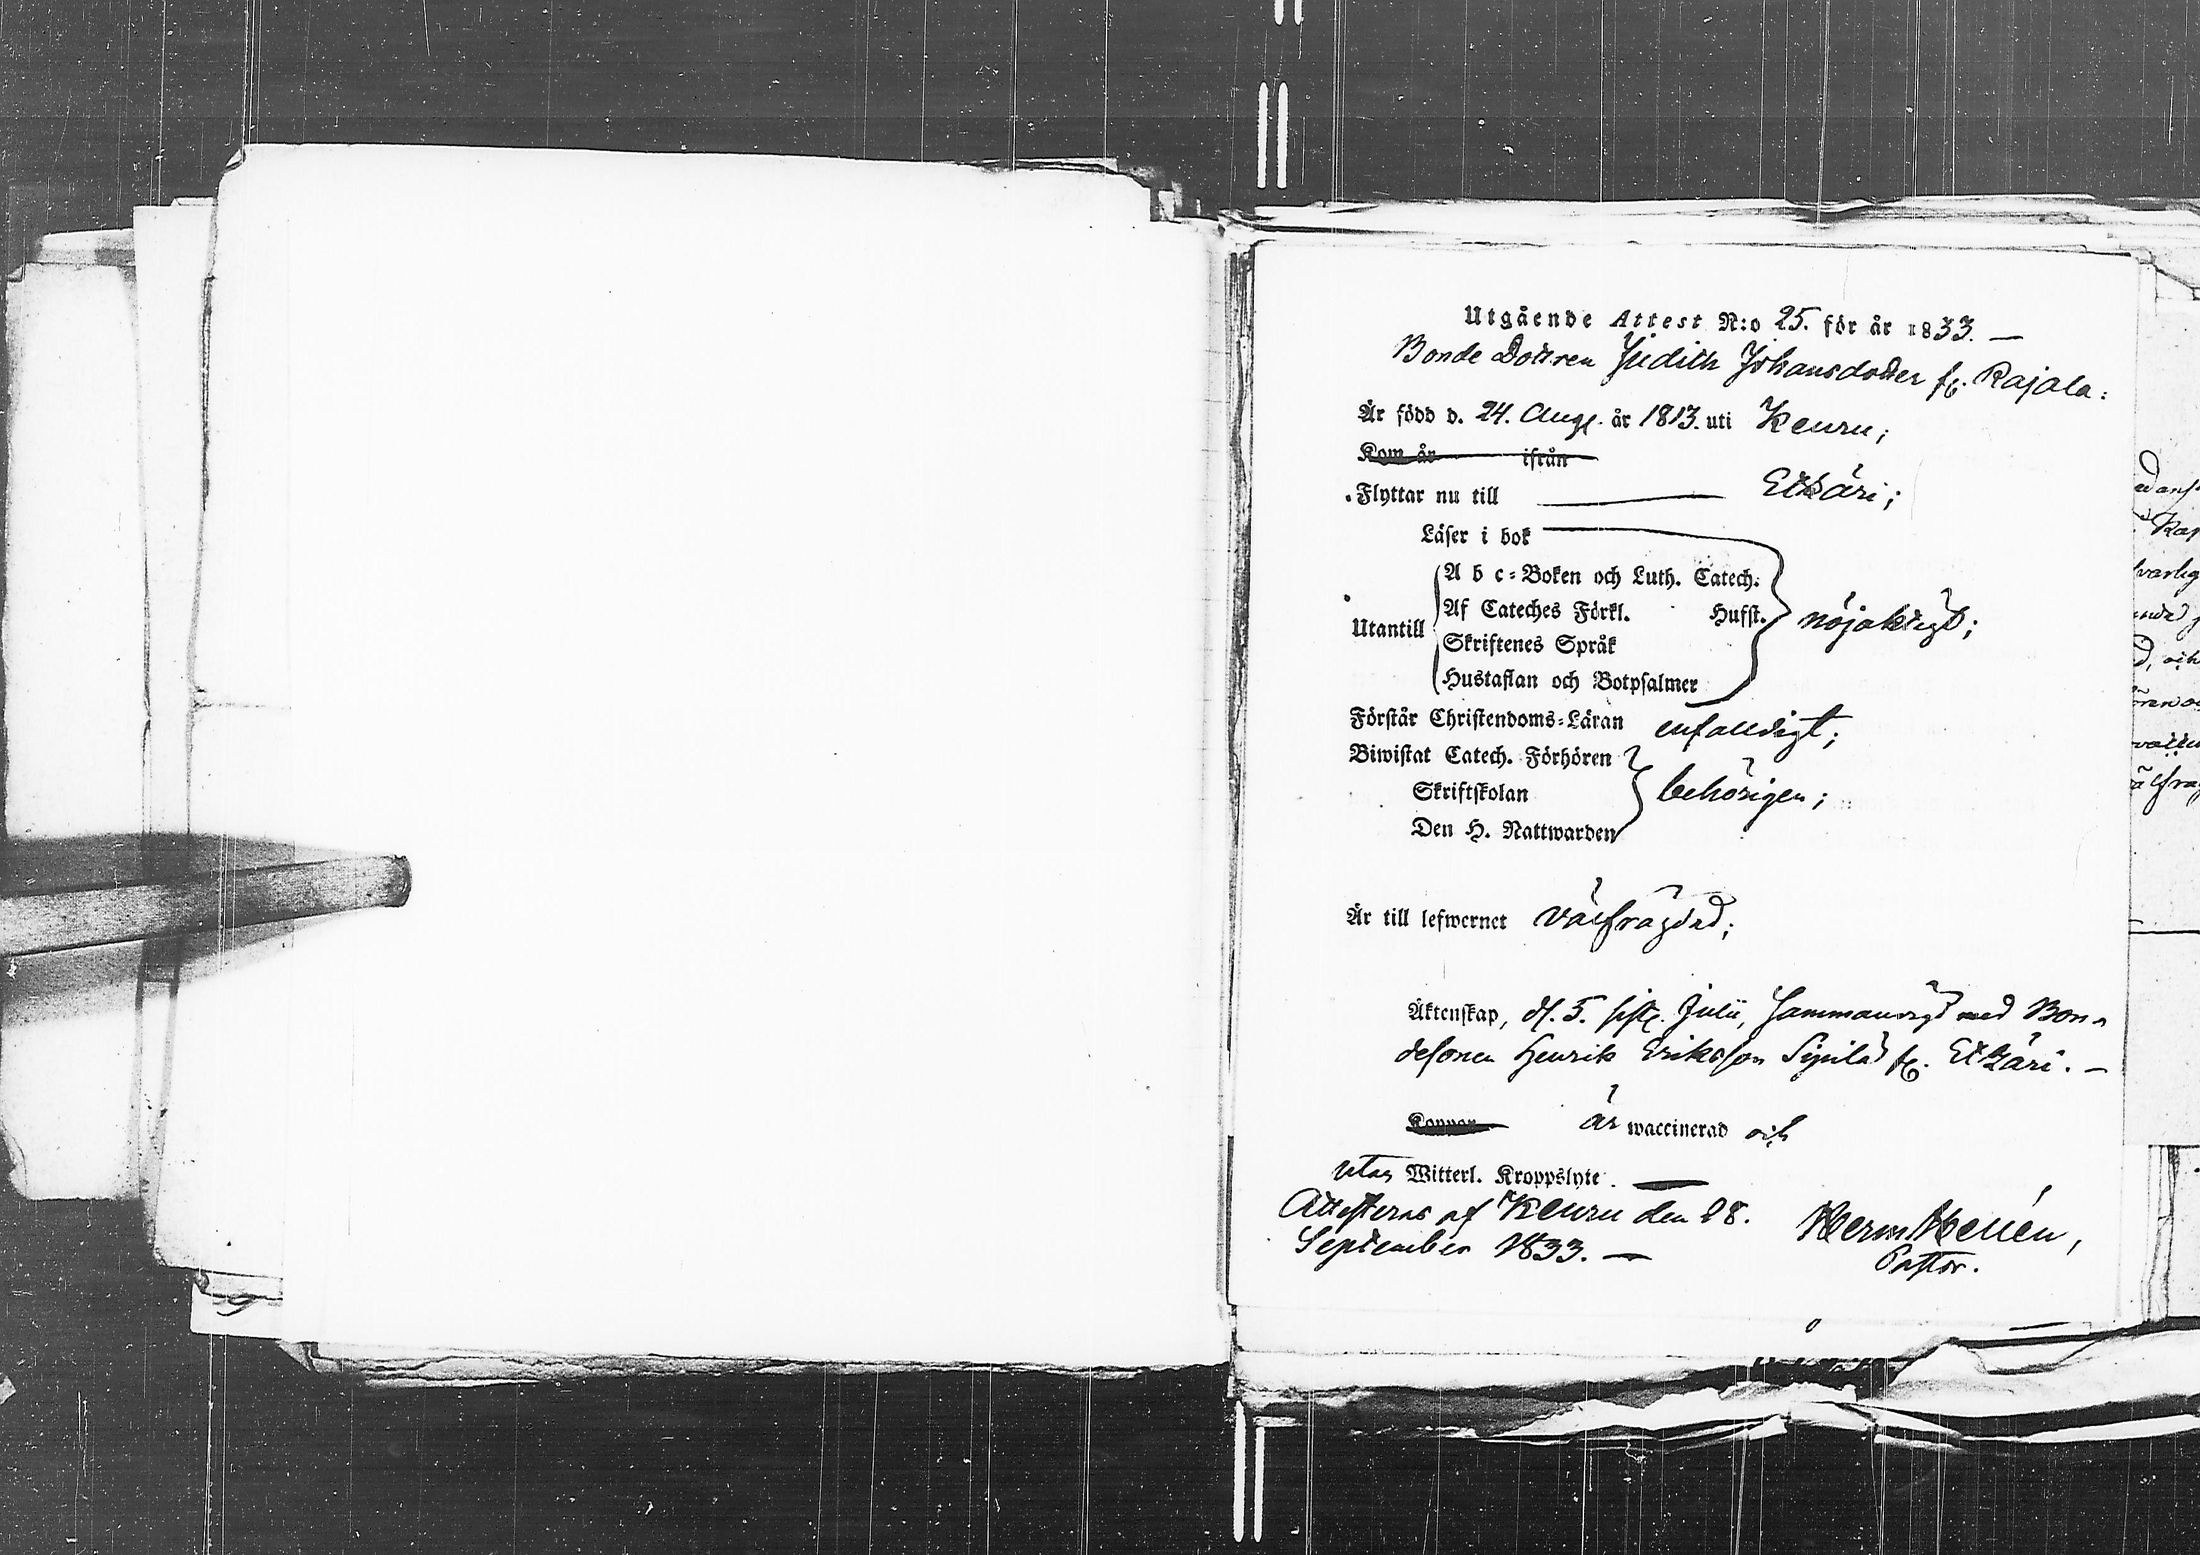 Utgående Attest N:o 25. för år 1833. —
Bonde Dottren Judith Johansdotter fr. Rajala:
Är född d. 24. Aug. år 1813. uti Keuru;
Kom år ifrån
Flyttar nu till — Etsäri;
Läser i bok
Utantill
A b c=Boken och Luth. Catech.
Af Cateches Förkl. Hufst.
nöjaktigt;
Skriftenes Språk
Hustaflan och Botpsalmer
Förstår Christendoms=Läran enfaldigt;
Biwistat Catech. Förhören
Skriftskolan
behörigen;
Den H. Nattwarden
Är till lefwernet välfrägdad;
Äktenskap, d. 5. sistl. Julii, sammanvigd med Bon-
desonen Henrik Eriksson Sipilä fr. Etsäri. —
Koppor är waccinerad och
utan Witterl. Kroppslyte. —
Attesteras af Keuru den 28.
September 1833. —
Herm Hellén,
Pastor.